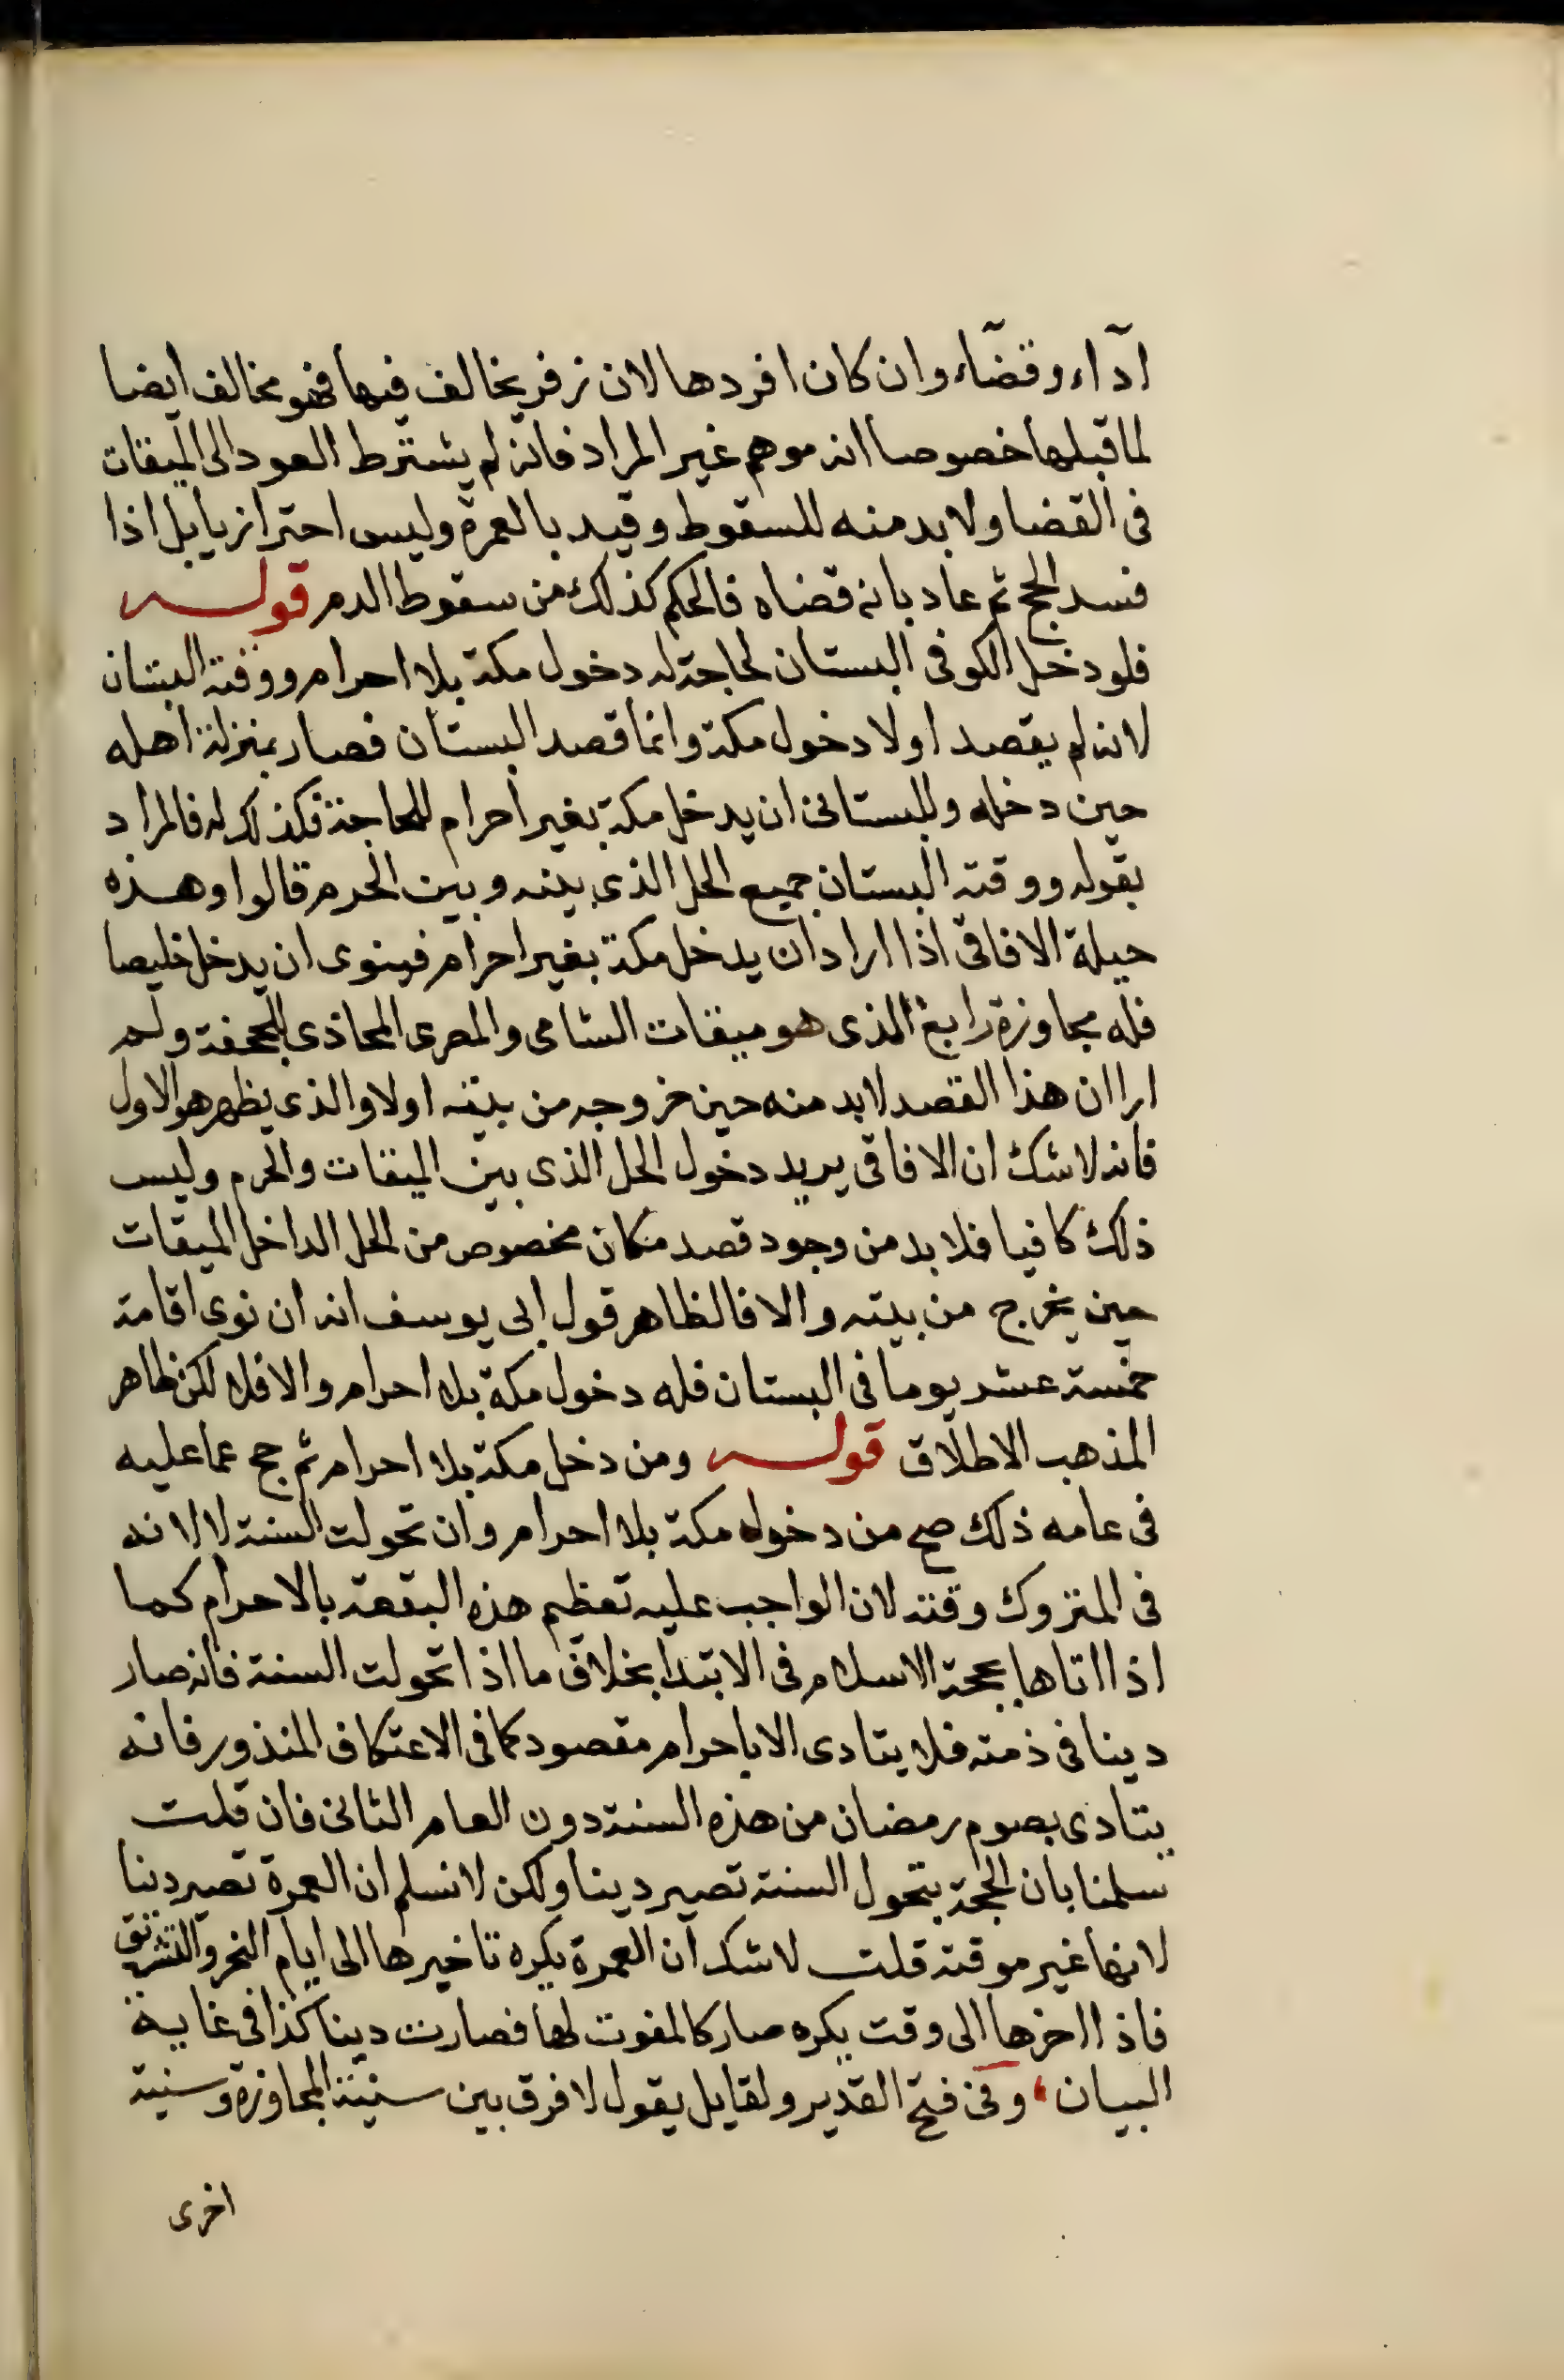 آداء وقضاء وان كان افردها لان زفر يخالف فيها فهو مخالف ايضا
لما قبلها خصوصا انه موهم غير المراد فانه لم يشترط العود الى الميقات
فى القضا ولا بد منه للسقوط وقيد بالعمرة وليس احترازيا بل اذا
فسد الحج ثم عاد بانه قضاه فالحكم كذلك من سقوط الدم قوله
فلو دخل الكوفى البستان لحاجة له دخول مكة بلا احرام ووقته البستان
لانه لم يقصد اولا دخول مكة وانما قصد البستان فصار بمنزلة اهله
حين دخله وللبستانى ان يدخل مكة بغير احرام للحاجة فكذلك له فالمراد
بقوله ووقته البستان جميع الحل الذى بينه وبين الحرم قالوا وهذه
حيلة الافاقى اذا اراد ان يدخل مكة بغير احرام فينوى ان يدخل خليصا
فله مجاوزة رابغ الذى هو ميقات الشامى والمصرى المحاذى للجحفة ولم
ارا ان هذا القصد لابد منه حين خروجه من بيته اولا والذى يظهر هو الاول
فانه لاشك ان الافاقى يريد دخول الحل الذى بين الميقات والحرم وليس
ذلك كافيا فلا بد من وجود قصد مكان مخصوص من الحل الداخل الميقات
حين يخرج من بيته والا فالظاهر قول ابى يوسف انه ان نوى اقامة
خمسة عشر يوما فى البستان فله دخول مكة بلا احرام والا فلا لكن ظاهر
المذهب الاطلاق قوله ومن دخل مكة بلا احرام ثم حج عما عليه
فى عامه ذلك صح من دخوله مكة بلا احرام وان تحولت السنة لا لانه
فى المتروك وقته لان الواجب عليه تعظيم هذه البقعة بالاحرام كما
اذا اتاها بحجة الاسلام فى الابتدا بخلاف ما اذا تحولت السنة فانه صار
دينا فى ذمته فلا يتادى الا باحرام مقصود كما فى الاعتكاف المنذور فانه
يتادى بصوم رمضان من هذه السنة دون العام الثانى فان قلت
سلمنا بان الحجة بتحول السنة تصير دينا ولكن لا نسلم ان العمرة تصير دينا
لانها غير موقتة قلت لاشك ان العمرة يكره تاخيرها الى ايام النحر والتشريق
فاذا اخرها الى وقت يكره صار كالمفوت لها فصارت دينا كذا فى غاية
البيان، وفى فتح القدير ولقايل يقول لا فرق بين سنية المجاوزة وسنية
اخرى